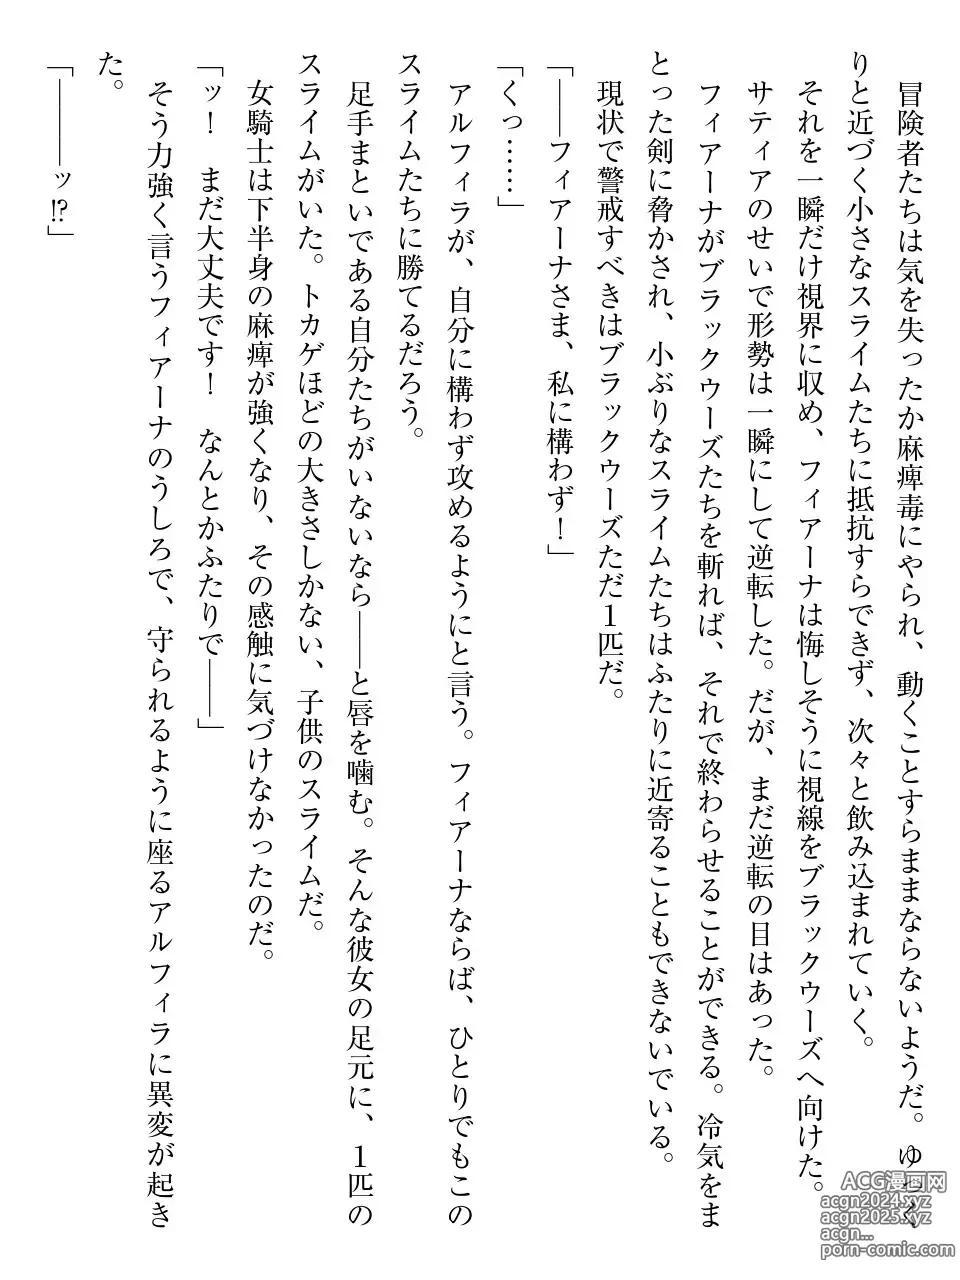 冒険者たちは気を失ったか麻痺毒にやられ、動くことすらままならないようだ。ゆっく
りと近づく小さなスライムたちに抵抗すらできず、次々と飲み込まれていく。
それを一瞬だけ視界に収め、フィアーナは悔しそうに視線をブラックウーズへ向けた。
サティアのせいで形勢は一瞬にして逆転した。だが、まだ逆転の目はあった。
フィアーナがブラックウーズたちを斬れば、それで終わらせることができる。冷気をま
とった剣に脅かされ、小ぶりなスライムたちはふたりに近寄ることもできないでいる。
現状で警戒すべきはブラックウーズただ１匹だ。
「――フィアーナさま、私に構わず！」
「くっ……」
アルフィラが、自分に構わず攻めるようにと言う。フィアーナならば、ひとりでもこの
スライムたちに勝てるだろう。
足手まといである自分たちがいないなら――と唇を噛む。そんな彼女の足元に、１匹の
スライムがいた。トカゲほどの大きさしかない、子供のスライムだ。
女騎士は下半身の麻痺が強くなり、その感触に気づけなかったのだ。
「ッ！　まだ大丈夫です！　なんとかふたりで――」
そう力強く言うフィアーナのうしろで、守られるように座るアルフィラに異変が起き
た。
「――――ッ!?」
ACG漫画网
acgn2024.xyz
acgn2025.xyz
acgn...
porn-comic.com